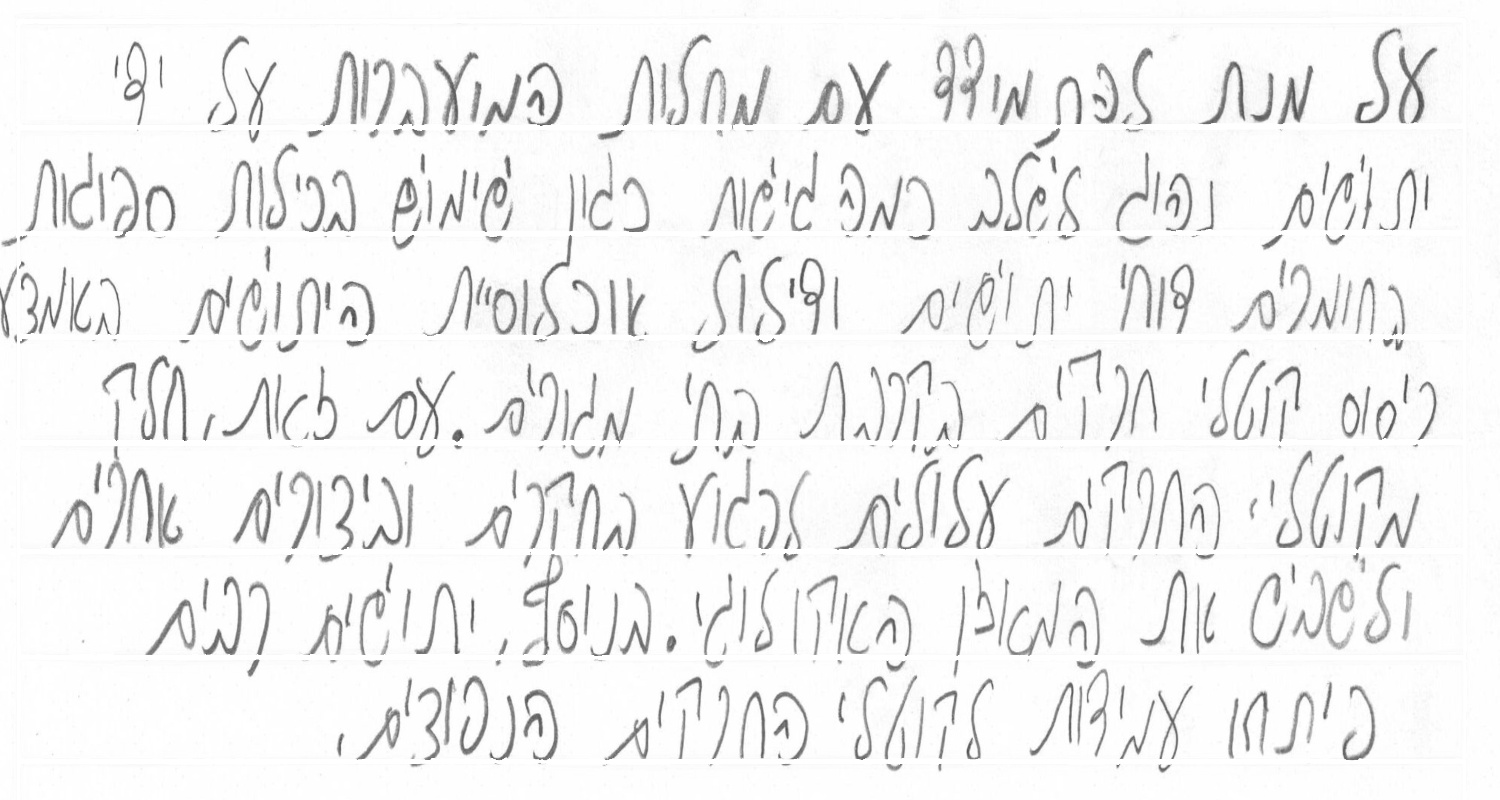 על מנת להתמודד עם מחלות המועברות על ידי
יתושים נהוג לשלב כמה גישות כגון שימוש בכילות ספוגות
בחומרים דוחי יתושים ודילול אוכלוסיית היתושים באמצע
ריסוס קוטלי חרקים בקרבת בתי מגורים. עם זאת, חלק
מקוטלי החרקים עלולים לפגוע בחקרים וביצורים אחרים
ולשבש את המאוזן האקולוגי. בנוסף, יתושים רבים
פיתחו עמידות לקוטלי החרקים הנפוצים.